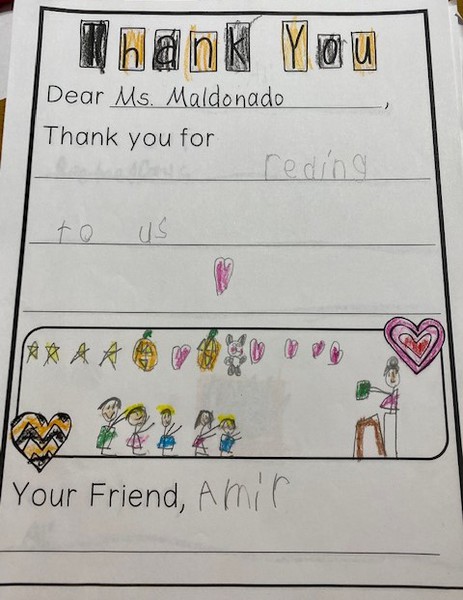 Thank You
Dear Ms. Maldonado,
Thank you for
reding
to us
Your Friend, Amir